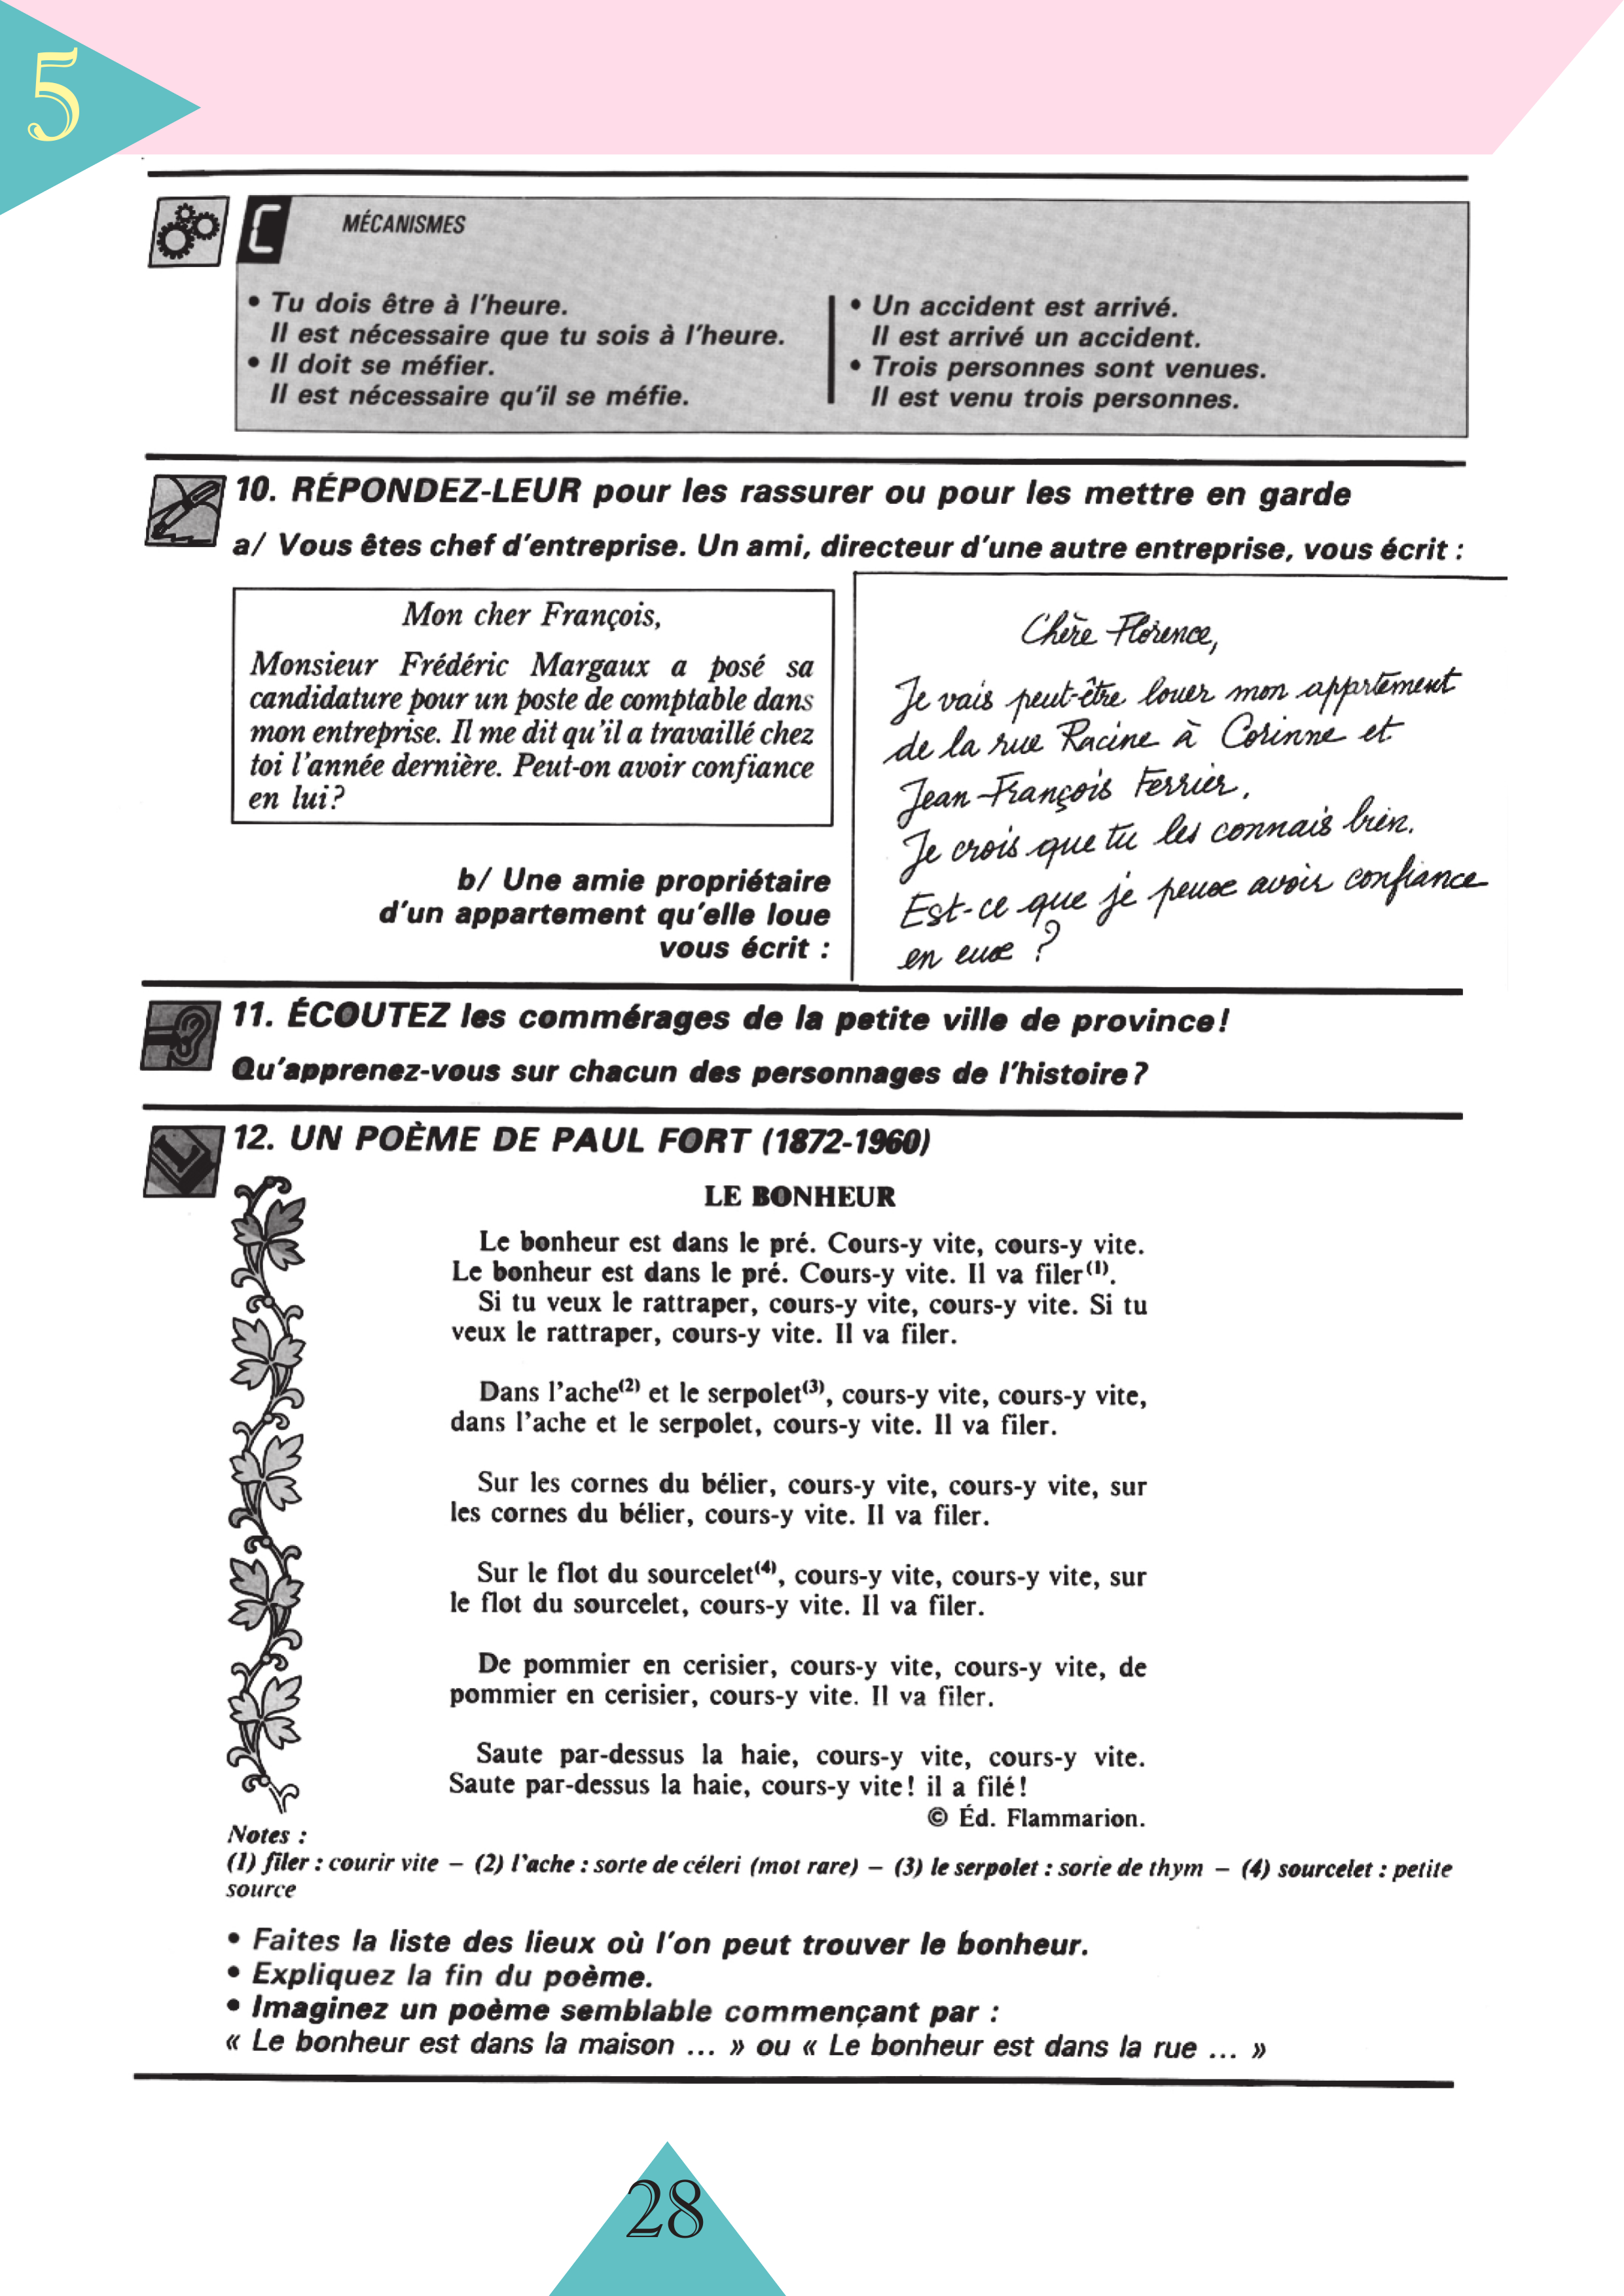 5
C
MÉCANISMES
• Tu dois être à l'heure.
Il est nécessaire que tu sois à l'heure.
• Il doit se méfier.
Il est nécessaire qu'il se méfie.
• Un accident est arrivé.
Il est arrivé un accident.
• Trois personnes sont venues.
Il est venu trois personnes.
10. RÉPONDEZ-LEUR pour les rassurer ou pour les mettre en garde
a/ Vous êtes chef d'entreprise. Un ami, directeur d'une autre entreprise, vous écrit :
Mon cher François,
Monsieur Frédéric Margaux a posé sa
candidature pour un poste de comptable dans
mon entreprise. Il me dit qu'il a travaillé chez
toi l'année dernière. Peut-on avoir confiance
en lui?
b/ Une amie propriétaire
d'un appartement qu'elle loue
vous écrit :
Chère Florence,
Je vais peut-être louer mon appartement
de la rue Racine à Corinne et
Jean-François Ferrier.
Je crois que tu les connais bien.
Est-ce que je peux avoir confiance
en eux ?
11. ÉCOUTEZ les commérages de la petite ville de province!
Qu'apprenez-vous sur chacun des personnages de l'histoire?
12. UN POÈME DE PAUL FORT (1872-1960)
LE BONHEUR
Le bonheur est dans le pré. Cours-y vite, cours-y vite.
Le bonheur est dans le pré. Cours-y vite. Il va filer(1).
Si tu veux le rattraper, cours-y vite, cours-y vite. Si tu
veux le rattraper, cours-y vite. Il va filer.
Dans l'ache(2) et le serpolet(3), cours-y vite, cours-y vite,
dans l'ache et le serpolet, cours-y vite. Il va filer.
Sur les cornes du bélier, cours-y vite, cours-y vite, sur
les cornes du bélier, cours-y vite. Il va filer.
Sur le flot du sourcelet(4), cours-y vite, cours-y vite, sur
le flot du sourcelet, cours-y vite. Il va filer.
De pommier en cerisier, cours-y vite, cours-y vite, de
pommier en cerisier, cours-y vite. Il va filer.
Saute par-dessus la haie, cours-y vite, cours-y vite.
Saute par-dessus la haie, cours-y vite! il a filé!
© Éd. Flammarion.
Notes :
(1) filer : courir vite – (2) l'ache : sorte de céleri (mot rare) – (3) le serpolet : sorte de thym – (4) sourcelet : petite
source
• Faites la liste des lieux où l'on peut trouver le bonheur.
• Expliquez la fin du poème.
• Imaginez un poème semblable commençant par :
« Le bonheur est dans la maison ... » ou « Le bonheur est dans la rue ... »
28